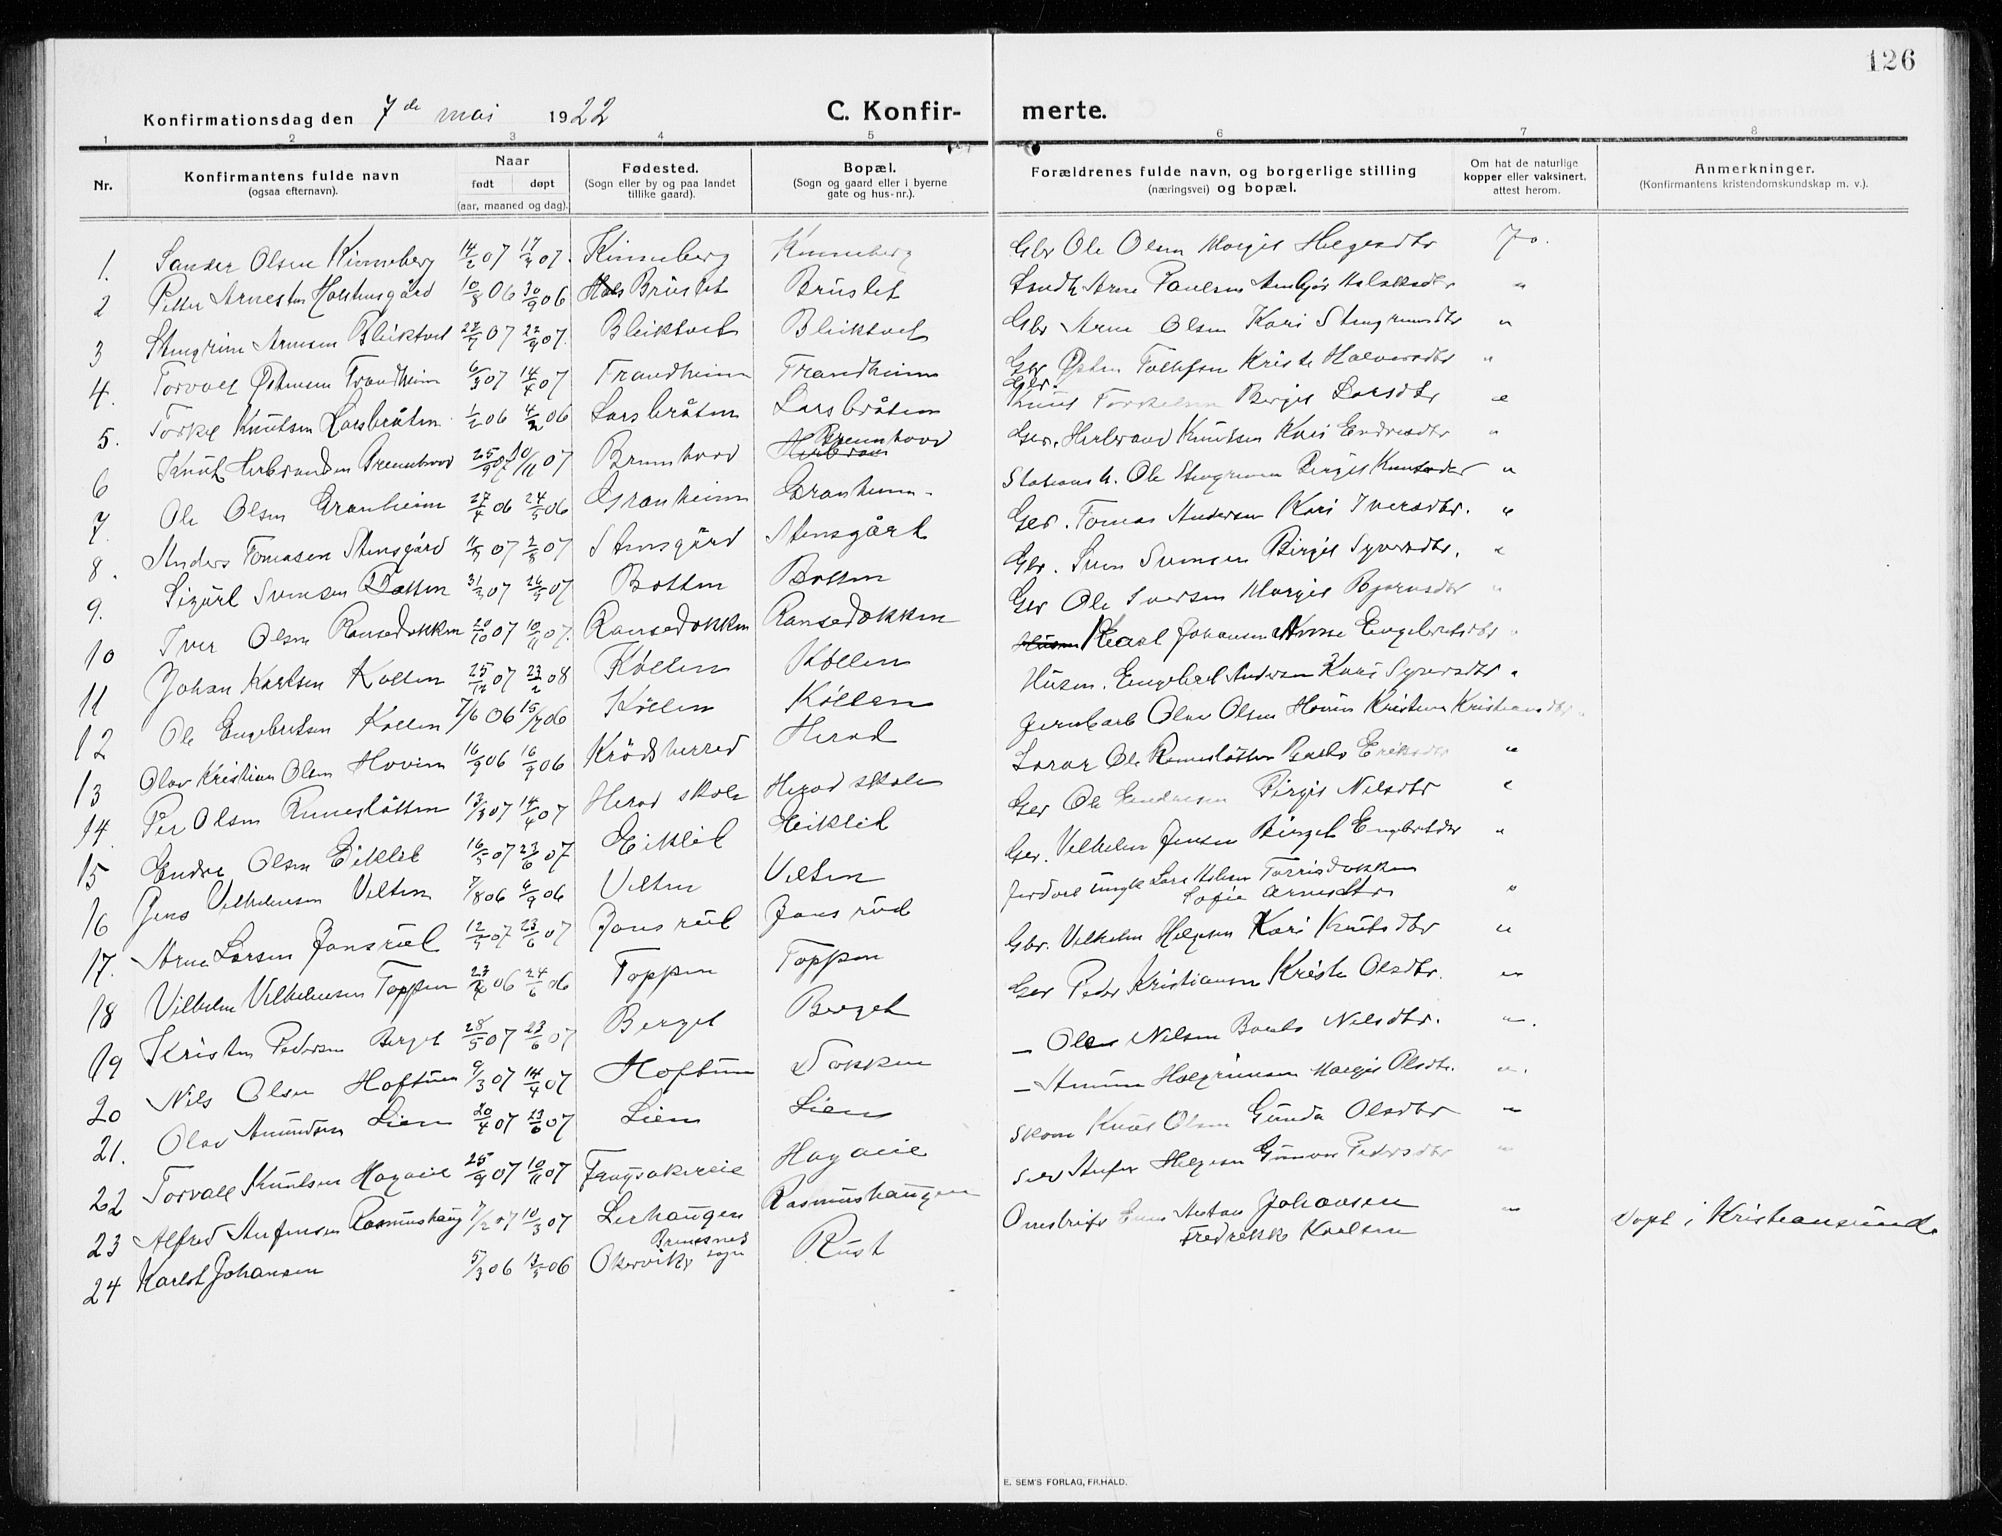 126
Konfirmationsdag den 7de mai 1922 C. Konfir- merte.
1 2 3 4 5 6 7 8
Nr. Konfirmantens fulde navn (ogsaa efternavn). Naar født døpt (aar, maaned og dag). Fødested. (Sogn eller by og paa landet tillike gaard). Bopæl. (Sogn og gaard eller i byerne gate og hus-nr.). Forældrenes fulde navn, og borgerlige stilling (næringsvei) og bopæl. Om hat de naturlige kopper eller vaksinert, attest herom. Anmerkninger. (Konfirmantens kristendomskundskap m. v.).
1. Sander Olsen Kinneberg 14/2 07 17/3 07. Kinneberg Kinneberg Gbr Ole Olsen Margit Helgesdtr Ja.
2 Petter Arnesen Holstensgård 10/8 06 30/9 06 Bruslet Bruslet Arne Paulsen "
3 Stengrim Arnesen Bleiktvet 07 22/9 07. Bleiktvet Bleiktvet Gbr Arne Olsen Kari Stengrimsdtr "
4. Torvald Østensen Trandheim 6/3 07 14/4 07 Trandheim Trandheim Gbr Østen Tollefsen Kristi Halvorsdtr "
5. Torkel Knutsen Larsbråten 1/2 06 4/2 06 Larsbråten Larsbråten Gbr. Knut Torkelsen Bergit Larsdtr "
6 Knut Herbrandsen Brennhovd 25/9 07 10/11 07 Brennhovd Brennhovd Gbr. Herbrand Knutsen Kari Endresdtr "
7. Ole Olsen Granheim 27/4 06 24/5 06 Granheim Granheim Ole Stengrimsen Birgit Knutsdtr "
8. Anders Tomasen Stensgård 07 2/8 07 Stensgård Stensgård Gbr. Tomas Andersen Kari Iversdtr. "
9. Sigurd Svensen Botten 31/3 07 26/5 07 Botten Botten Gbr. Sven Svensen Birgit Syversdtr. "
10 Iver Olsen Ransedokken 20/10 07 10/11 07. Ransedokken Ransedokken Gbr Ole Iversen Margit Bjørnsdtr "
11 Johan Karlsen Kollen 25/12 07 23/2 08 Kollen Kollen Karl Johansen Anne Engebretsdtr "
12 Ole Engebretsen Kollen 7/6 06 15/7 06 Kollen Kollen Husm. Engebret Andersen Kari Syversdtr "
13 Olav Kristian Olsen Hovin 16/9 06 16/9 06 Krødsherred Herad Jernbarb Olav Olsen Hovin Kristine Kristiansdtr "
14. Per Olsen Runeslåtten 13/3 07 14/4 07 Herad skole Herad skole Lærer Ole Runeslåtten Eriksdtr "
15 Endre Olsen Eiklid 16/5 07 23/6 07 Eiklid Eiklid Gbr Ole Endresen Birgit Nilsdtr "
16 Jens Vilhelmsen Velten 7/8 06 6/9 06 Velten Velten Gbr. Vilhelm Jensen Birgit Engebretsdtr "
17. Arne Larsen Jonsrud 12/5 07 23/6 07 Jonsrud Jonsrud Lars Torrisdokken Sofie Arnesdtr "
18 Vilhelm Vilhelmsen Toppen 06 24/6 06 Toppen Toppen Gbr. Vilhelm Helgesen Kari Knutsdtr "
19 Kristen Pedersen Berget 28/5 07 23/6 07 Berget Berget Gbr Peder Kristiansen Kristi Olsdtr. "
20 Nils Olsen Hoftun 9/3 07 14/4 07 Hoftun Dokken — Ole Nilsen Nilsdtr. "
21. Olav Amundsen Lien 20/4 07 23/6 07 Lien Lien — Amund Halgrimsen Margit Olsdtr. "
22 Torvald Knutsen Hagaeie 25/9 07 10/11 07 Hagaeie Skom Knut Olsen Gunda Olsdtr "
23 Alfred Anfinsen Rasmushaug 7/2 07 10/3 07 Lerhaugen Rasmushaugen Helgesen Gunvor Pedersdtr "
24 Karlot Johansen 5/3 06 06 Okervik Bremsnes sogn Rust Anton Johansen Fredrikke Karlsen " Døpt i Kristiansund.
E. SEM'S FORLAG, FR.HALD.